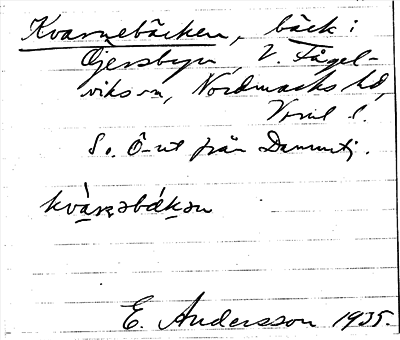 Kvarnebäcken, bäck i
Gjersbyn, V. Fågel-
viks sn, Nordmarks hd,
Vrml l.
S o. Ö-ut från Dammtj.
kvànəbǽkən
E. Andersson 1935.